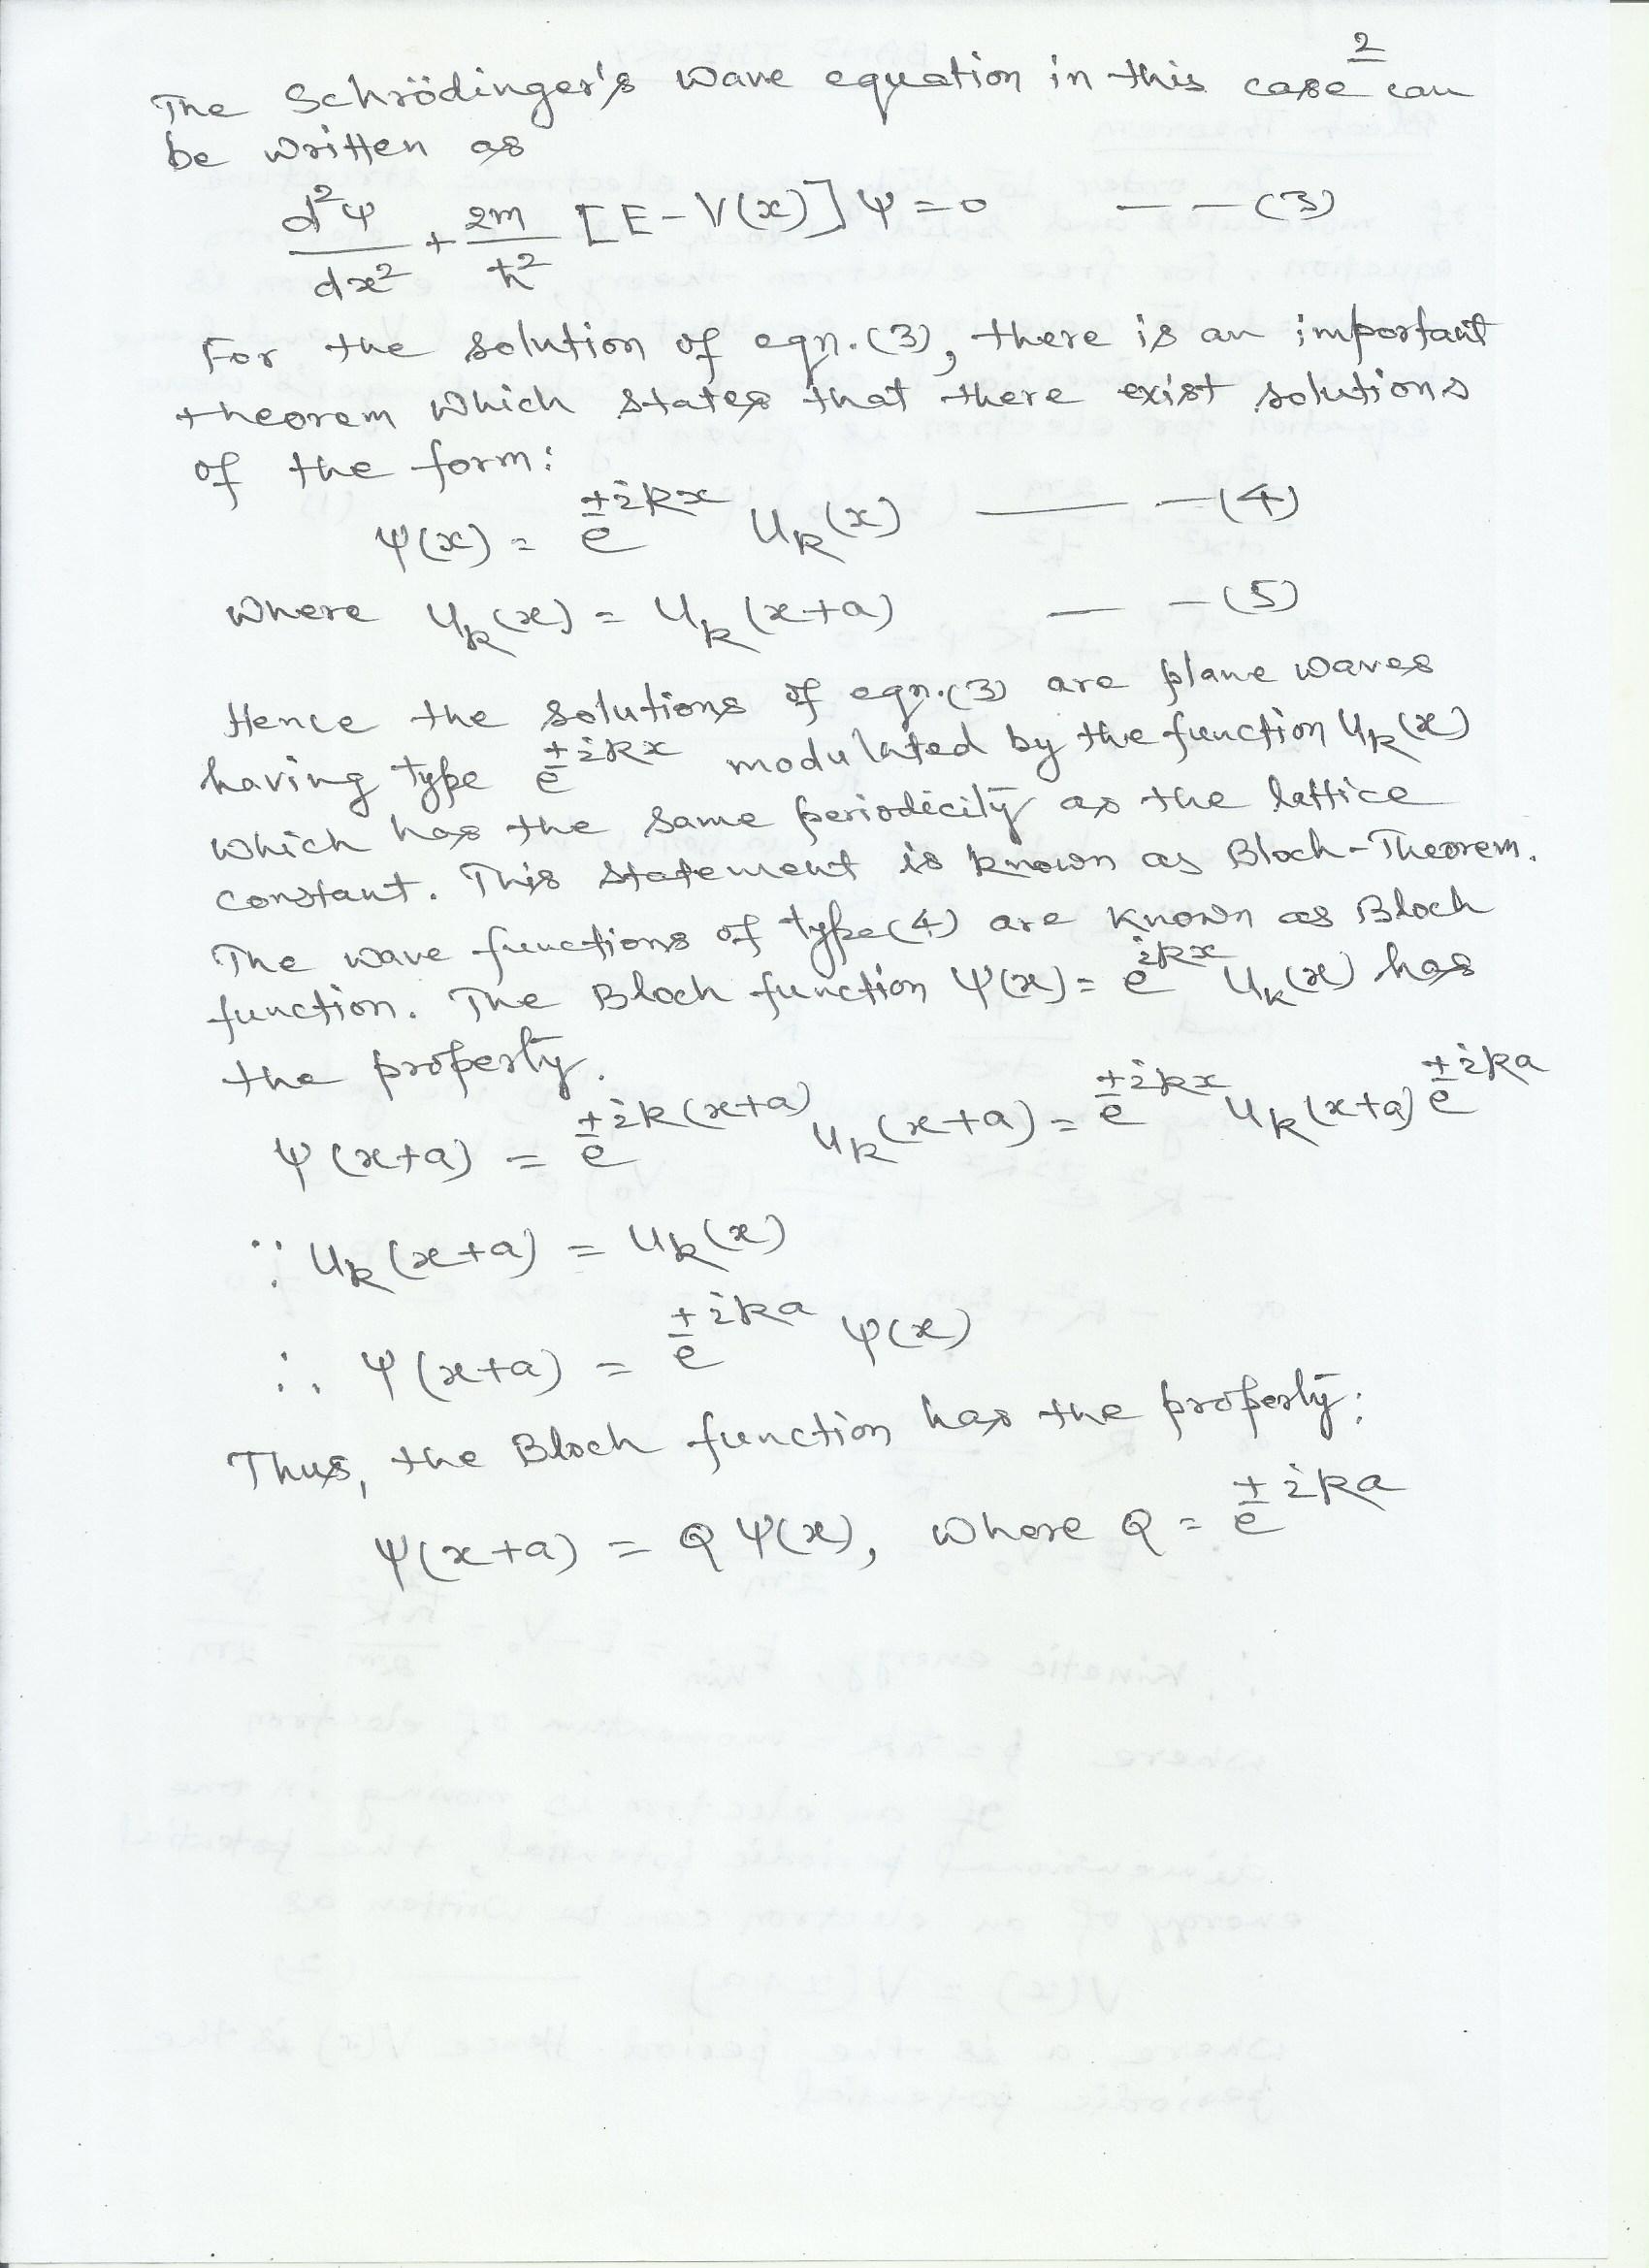 2
The Schrödinger's wave equation in this case can
be written as
d²ψ/dx² + 2m/ħ² [E - V(x)] ψ = 0 - - - (3)
For the solution of eqn. (3), there is an important
theorem which states that there exist solutions
of the form:
ψ(x) = e^{±ikx} u_k(x) — - (4)
where u_k(x) = u_k(x+a) — - (5)
Hence the solutions of eqn. (3) are plane waves
having type e^{±ikx} modulated by the function u_k(x)
which has the same periodicity as the lattice
constant. This statement is known as Bloch-Theorem.
The wave functions of type (4) are known as Bloch
function. The Bloch function ψ(x) = e^{ikx} u_k(x) has
the property.
ψ(x+a) = e^{±ik(x+a)} u_k(x+a) = e^{±ikx} u_k(x+a) e^{±ika}
∵ u_k(x+a) = u_k(x)
∴ ψ(x+a) = e^{±ika} ψ(x)
Thus, the Bloch function has the property:
ψ(x+a) = Q ψ(x), where Q = e^{±ika}